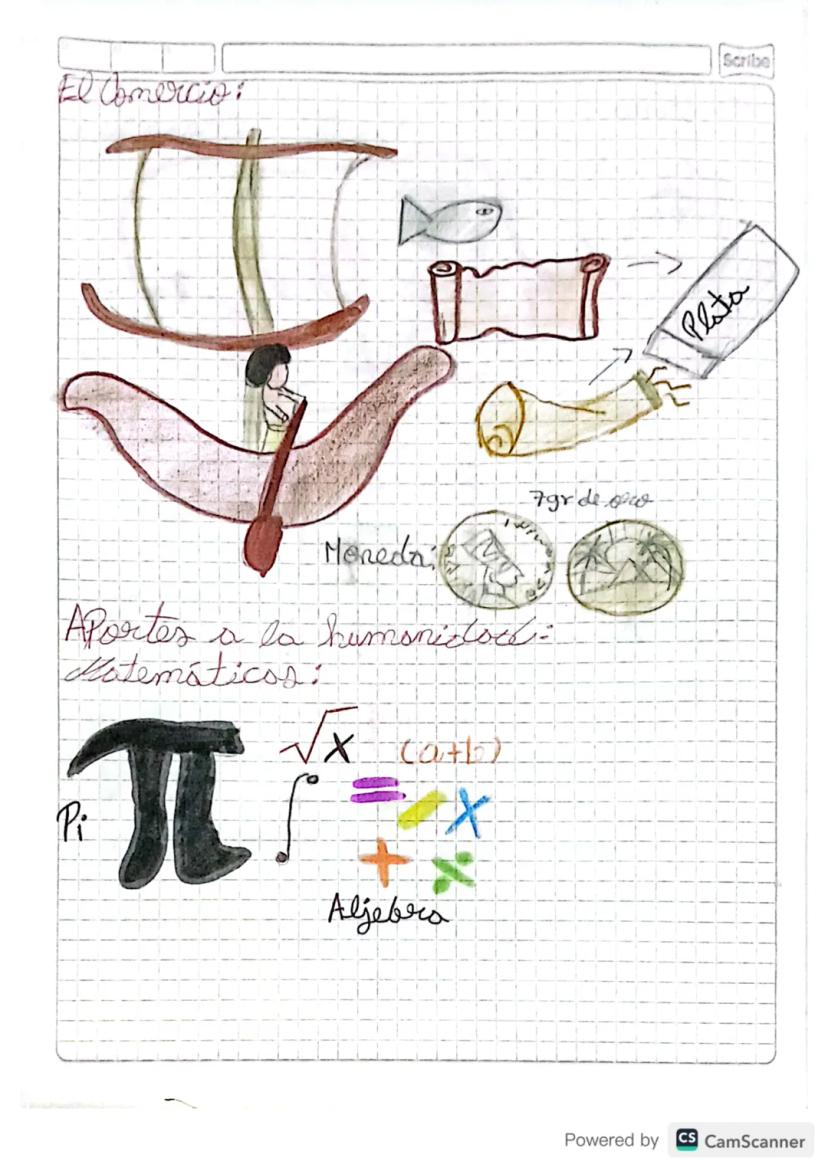 Scribe
El Comercio:
Plata
7gr de oro
Moneda:
APortes a la humanidad:
Matemáticos:
√x (a+b)
∫ = / x
Pi π
+ ÷
Aljebra
Powered by CS CamScanner